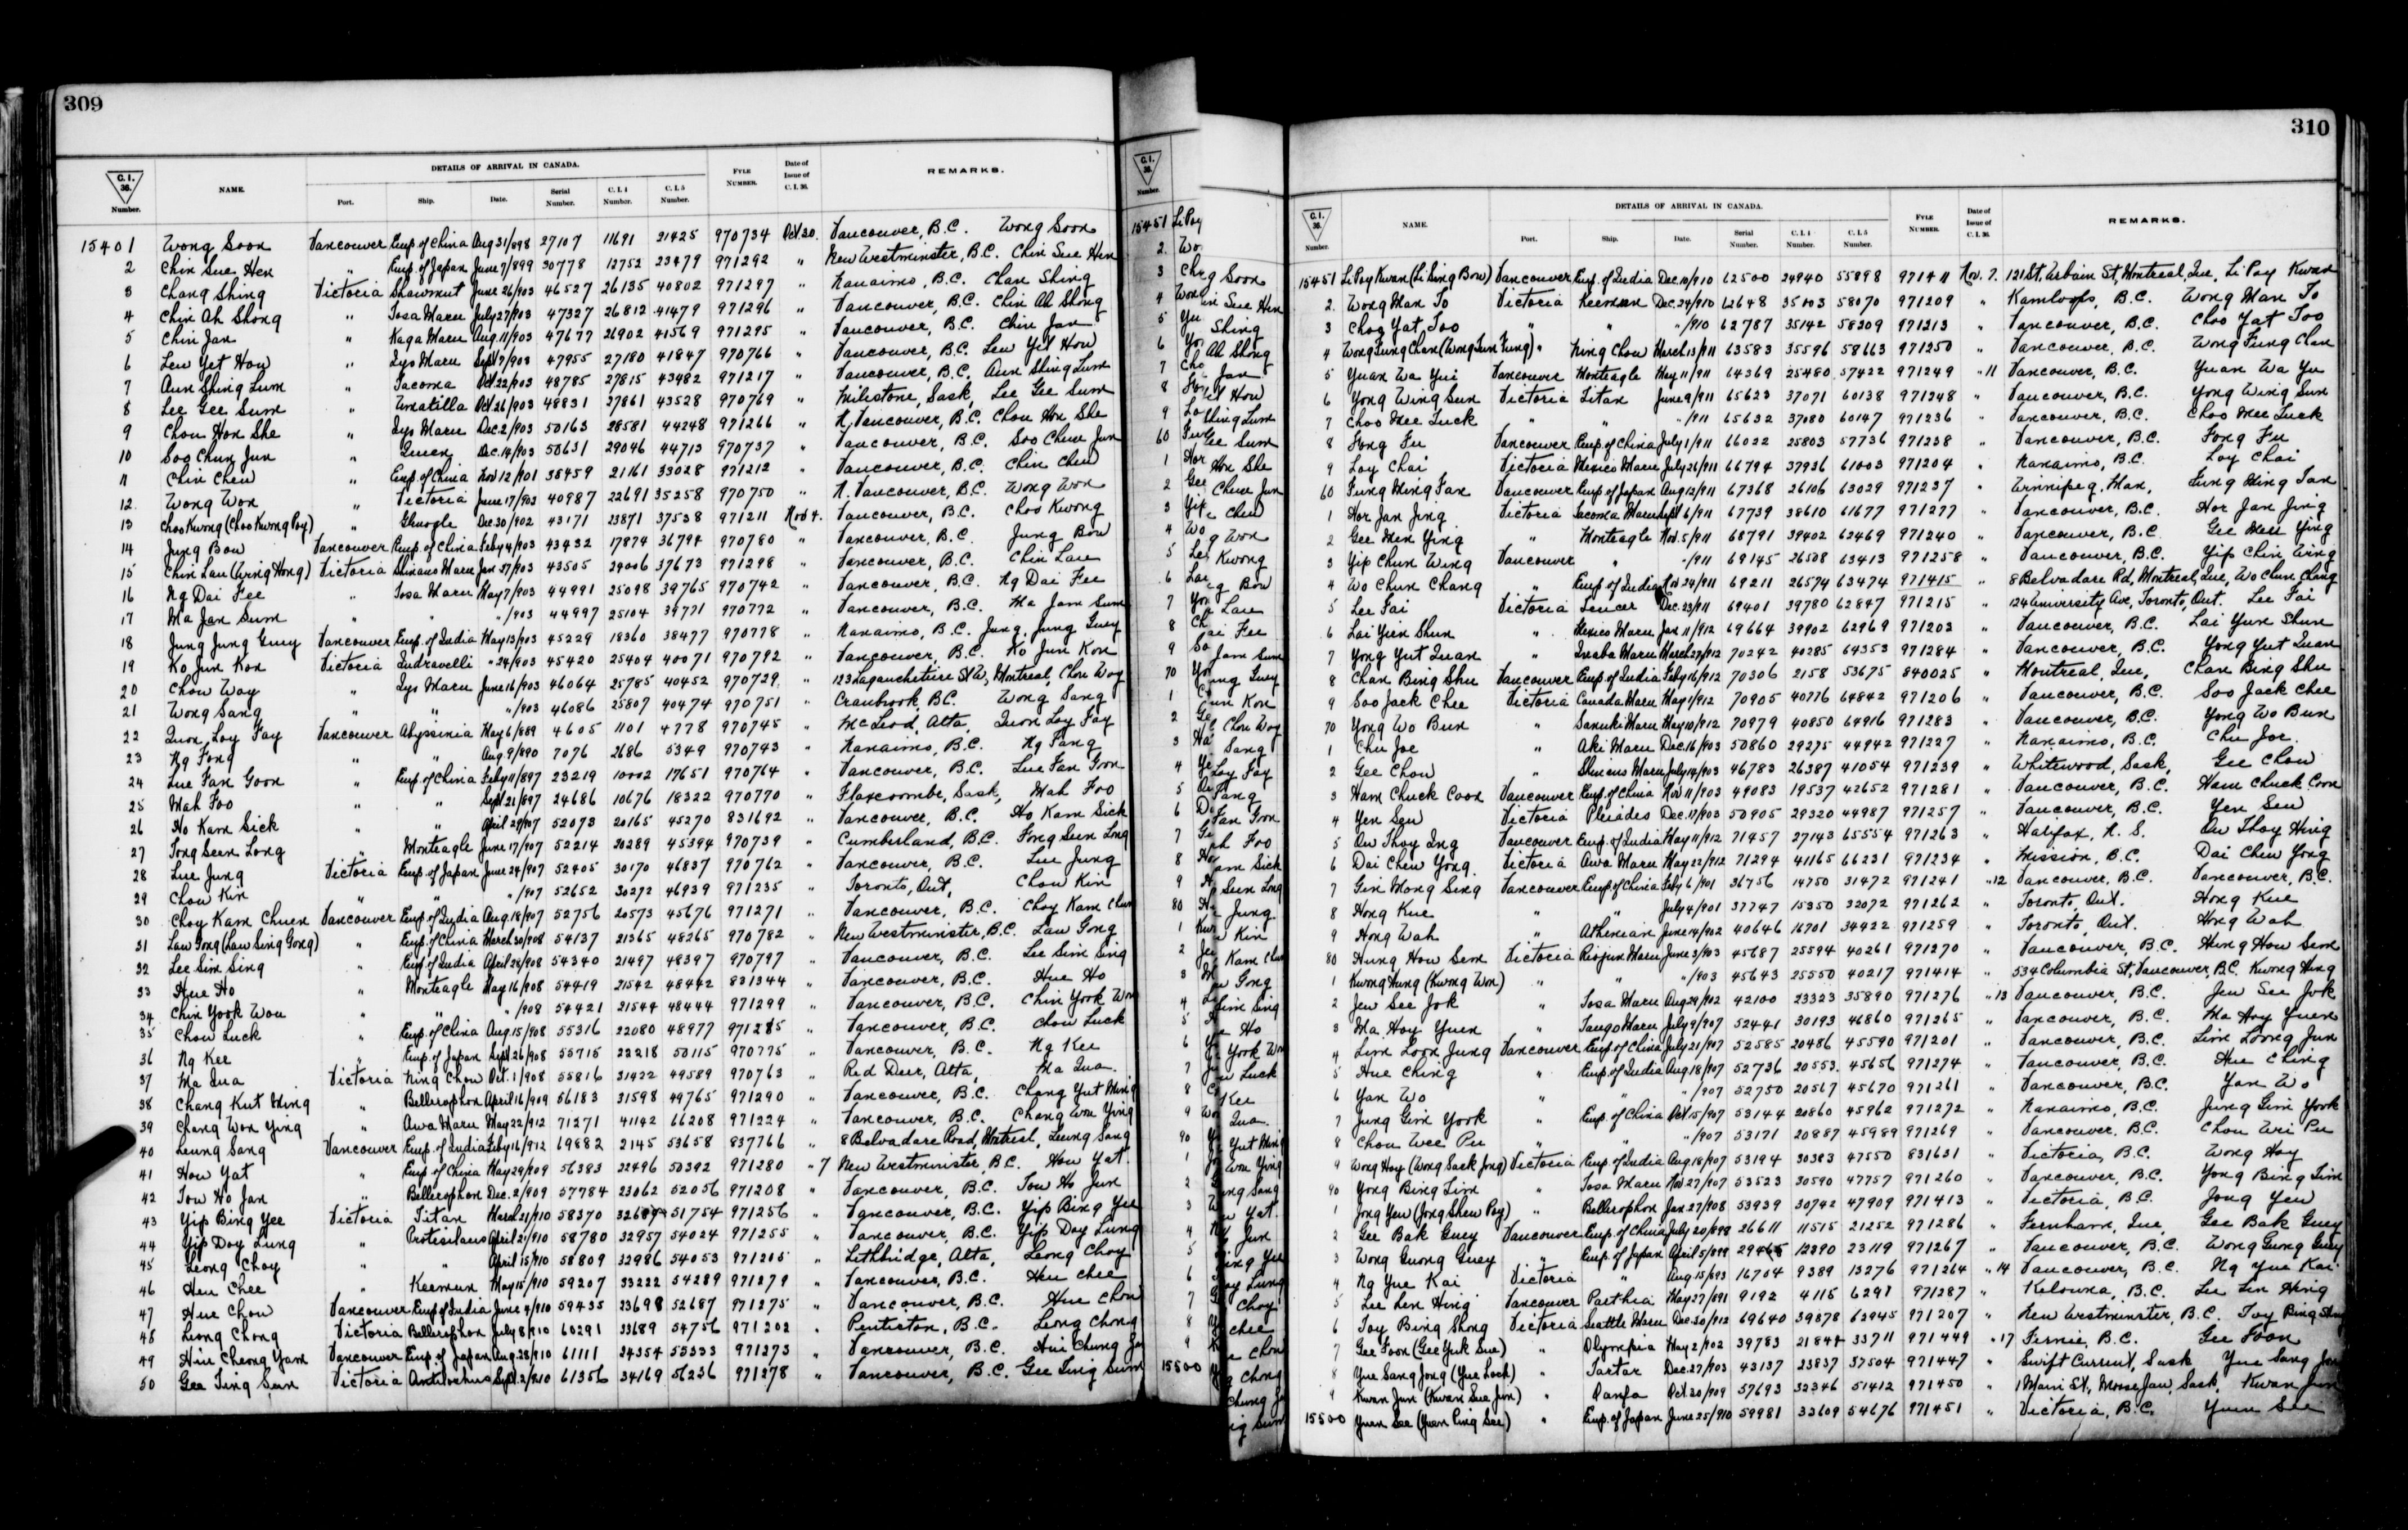 309
DETAILS OF ARRIVAL IN CANADA.
C. I. 36. Number. NAME. Port. Ship. Date. Serial Number. C. I. 4 Number. C. I. 5 Number. FYLE NUMBER. Date of Issue of C. I. 36. REMARKS.
15401 Wong Soon Vancouver Emp. of China Aug 31/898 27107 11691 21425 970734 Oct. 30. Vancouver, B.C. Wong Soon
2 Chin Sue Hen " Emp. of Japan June 7/899 30778 12752 23479 971292 " New Westminster, B.C. Chin Sue Hen
3 Chang Shing Victoria Shawmut June 26/903 46527 26135 40802 971297 " Nanaimo, B.C. Chan Shing
4 Chin Ah Shong " Tosa Maru July 27/903 47327 26812 41479 971296 " Vancouver, B.C. Chin Ah Shong
5 Chin Jan " Kaga Maru Aug. 11/903 47677 26902 41569 971295 " Vancouver, B.C. Chin Jan
6 Lew Yet How " Lys Maru Sept 7/903 47955 27180 41847 970766 " Vancouver, B.C. Lew Yet How
7 Aun Shing Lum " Tacoma Oct. 22/903 48785 27815 43482 971217 " Vancouver, B.C. Aun Shing Lum
8 Lee Gee Sum " Umatilla Oct. 26/903 48831 27861 43528 970769 " Milestone, Sask, Lee Gee Sum
9 Chou Hon She " Lys Maru Dec. 2/903 50163 28581 44248 971266 " N. Vancouver, B.C. Chou Hon She
10 Soo Chun Jun " Queen Dec. 14/903 50631 29046 44713 970737 " Vancouver, B.C. Soo Chun Jun
11 Chin Chew " Emp. of China Nov 12/901 38459 21161 33028 971212 " Vancouver, B.C. Chin Chew
12. Wong Won " Victoria June 17/902 40987 22691 35258 970750 " N. Vancouver, B.C. Wong Won
13 Choo Kwong (Choo Kwong Poy) " Glenogle Dec. 30/902 43171 23871 37538 971211 Nov 4. Vancouver, B.C. Choo Kwong
14 Jung Bow Vancouver Emp. of China Feby 4/903 43432 17874 36794 970780 " Vancouver, B.C. Jung Bow
15 Chin Lau (Wing Hong) Victoria Shinano Maru Jan 27/903 43505 24006 37673 971298 " Vancouver, B.C. Chin Lau
16 Ng Dai Fee " Tosa Maru May 7/903 44991 25098 39765 970742 " Vancouver, B.C. Ng Dai Fee
17 Ma Jan Sum " " " /903 44997 25104 39771 970772 " Vancouver, B.C. Ma Jam Sum
18 Jung Jung Guey Vancouver Emp. of India May 13/903 45229 18360 38477 970778 " Nanaimo, B.C. Jung Jung Guey
19 Ko Jun Kon Victoria Indravelli " 24/903 45420 25404 40071 970792 " Vancouver, B.C. Ko Jun Kon
20 Chou Way " Lys Maru June 16/903 46064 25785 40452 970729 " 123 Lagauchetiere St W, Montreal, Chou Way
21 Wong Sang " " " /903 46086 25807 40474 970751 " Cranbrook, B.C. Wong Sang
22 Quon Loy Fay Vancouver Abyssinia May 6/889 4605 1101 4778 970745 " McLeod, Alta, Quon Loy Fay
23 Ng Fong " " Aug 9/890 7076 2686 5349 970743 " Nanaimo, B.C. Ng Fang
24 Lue Fan Goon " Emp. of China Feby 11/897 23219 10002 17651 970764 " Vancouver, B.C. Lue Fan Goon
25 Mah Foo " " Sept. 21/897 24686 10676 18322 970770 " Flaxcombe, Sask, Mah Foo
26 Ho Kam Sick " " April 29/907 52073 20165 45270 831692 " Vancouver, B.C. Ho Kam Sick
27 Fong Seun Long " Monteagle June 17/907 52214 20289 45394 970739 " Cumberland, B.C. Fong Seun Long
28 Lue Jung Victoria Emp. of Japan June 24/907 52405 30170 46837 970762 " Vancouver, B.C. Lue Jung
29 Chow Kin " " " /907 52652 30272 46939 971235 " Toronto, Ont, Chow Kin
30 Choy Kam Chuen Vancouver Emp. of India Aug. 18/907 52756 20573 45676 971271 " Vancouver, B.C. Choy Kam Chun
31 Law Gong (Law Sing Gong) " Emp. of China March 30/908 54137 21365 48265 970782 " New Westminster, B.C. Law Gong
32 Lee Sim Sing " Emp. of India April 28/908 54340 21497 48397 970797 " Vancouver, B.C. Lee Sim Sing
33 Hue Ho " Monteagle May 16/908 54419 21542 48442 831344 " Vancouver, B.C. Hue Ho
34 Chin Yook Wou " " " /908 54421 21544 48444 971299 " Vancouver, B.C. Chin Yook Wou
35 Chow Luck " Emp. of China Aug. 15/908 55316 22080 48977 971285 " Vancouver, B.C. Chow Luck
36 Ng Kee " Emp. of Japan Sept. 26/908 55715 22218 50115 970775 " Vancouver, B.C. Ng Kee
37 Ma Qua Victoria Ning Chow Oct. 1/908 55816 31422 49589 970763 " Red Deer, Alta, Ma Qua
38 Chang Kut Ming " Bellerophon April 16/909 56183 31598 49765 971290 " Vancouver, B.C. Chang Yut Ming
39 Chang Won Ying " Awa Maru May 22/912 71271 41142 66208 971224 " Vancouver, B.C. Chang Won Ying
40 Leung Sang Vancouver Emp. of India Feby 16/912 69882 2145 53658 837766 " 8 Belvadare Road, Montreal, Leung Sang
41 How Yat " Emp. of China May 29/909 56383 22496 50392 971280 " 7 New Westminister, B.C. How Yat
42 Tow Ho Jan " Bellerophon Dec. 2/909 57784 23062 52056 971208 " Vancouver, B.C. Tow Ho Jun
43 Yip Bing Yee Victoria Titan March 21/910 58370 32687 51754 971256 " Vancouver, B.C. Yip Bing Yee
44 Yip Doy Lung " Protesilaus April 2/910 58780 32957 54024 971255 " Vancouver, B.C. Yip Day Lung
45 Leong Choy " " April 15/910 58809 32986 54053 971205 " Lethbridge, Alta, Leong Choy
46 Heu Chee " Keemun May 15/910 59207 33222 54289 971279 " Vancouver, B.C. Heu Chee
47 Hue Chow Vancouver Emp. of India June 4/910 59435 23698 52687 971275 " Vancouver, B.C. Hue Chow
48 Leong Chong Victoria Bellerophon July 8/910 60291 33689 54756 971202 " Penticton, B.C. Leong Chong
49 Hui Cheong Yam Vancouver Emp. of Japan Aug. 28/910 61111 24354 55333 971273 " Vancouver, B.C. Hui Chung
50 Gee Ting Sum Victoria Antilochus Sept. 2/910 61356 34169 56236 971278 " Vancouver, B.C. Gee Ting Sum
310
DETAILS OF ARRIVAL IN CANADA.
C. I. 36. Number. NAME. Port. Ship. Date. Serial Number. C. I. 4 Number. C. I. 5 Number. FYLE NUMBER. Date of Issue of C. I. 36. REMARKS.
15451 Li Poy Kwan (Li Sing Bow) Vancouver Emp. of India Dec. 10/910 62500 24940 55898 971411 Nov. 7. 121 St. Urbain St, Montreal, Que, Li Poy Kwan
2. Wong Man To Victoria Keemun Dec. 24/910 62648 35003 58070 971209 " Kamloops, B.C. Wong Man To
3 Choo Yat Too " " " /910 62787 35142 58209 971213 " Vancouver, B.C. Choo Yat Too
4 Wong Fung Chan (Wong Sun Fung) " Ning Chow March 13/911 63583 35596 58663 971250 " Vancouver, B.C. Wong Fung Chan
5 Yuan Wa Yui Vancouver Monteagle May 11/911 64369 25480 57422 971249 " 11 Vancouver, B.C. Yuan Wa Yu
6 Yong Wing Sun Victoria Titan June 9/911 65623 37071 60138 971248 " Vancouver, B.C. Yong Wing Sun
7 Choo Mee Luck " " " /911 65632 37080 60147 971236 " Vancouver, B.C. Choo Mee Luck
8 Fong Fu Vancouver Emp. of China July 1/911 66022 25803 57736 971238 " Vancouver, B.C. Fong Fu
9 Loy Chai Victoria Mexico Maru July 26/911 66794 37936 61003 971204 " Nanaimo, B.C. Loy Chai
60 Fung Ming Fan Vancouver Emp. of Japan Aug 12/911 67368 26106 63029 971237 " Winnipeg, Man, Fung Ming Fan
1 Hor Jan Jing Victoria Tacoma Maru Sept 6/911 67739 38610 61677 971277 " Vancouver, B.C. Hor Jan Jing
2 Gee Men Ying " Monteagle Nov. 5/911 68791 39402 62469 971240 " Vancouver, B.C. Gee Men Ying
3 Yip Chun Wing Vancouver " " /911 69145 26508 63413 971258 " Vancouver, B.C. Yip Chin Wing
4 Wo Chun Chang " Emp. of India Nov 24/911 69211 26574 63474 971415 " 8 Belvadare Rd, Montreal, Que, Wo Chun Chang
5 Lee Fai Victoria Teucer Dec. 23/911 69401 39780 62847 971215 " 124 University Ave, Toronto, Ont. Lee Fai
6 Lai Yien Shun " Mexico Maru Jan 11/912 69664 39902 62969 971203 " Vancouver, B.C. Lai Yun Shun
7 Yong Yut Quan " Inaba Maru March 27/912 70242 40285 64353 971284 " Vancouver, B.C. Yong Yut Quan
8 Chan Bing Shu Vancouver Emp. of India Feby 16/912 70306 2158 53675 840025 " Montreal, Que, Chan Bing Shu
9 Soo Jack Chee Victoria Canada Maru May 1/912 70905 40776 64842 971206 " Vancouver, B.C. Soo Jack Chee
70 Yong Wo Bun " Sanuki Maru May 10/912 70979 40850 64916 971283 " Vancouver, B.C. Yong Wo Bun
1 Chu Joe " Aki Maru Dec. 16/903 50860 29275 44942 971227 " Nanaimo, B.C. Chu Joe
2 Gee Chow " Shinano Maru July 14/903 46783 26387 41054 971239 " Whitewood, Sask, Gee Chow
3 Ham Chuck Coon Vancouver Emp. of China Nov 11/903 49083 19537 42652 971281 " Vancouver, B.C. Ham Chuck Coon
4 Yen Sew Victoria Pleiades Dec. 17/903 50905 29320 44987 971257 " Vancouver, B.C. Yen Sew
5 Ow Thoy Ing Vancouver Emp. of India May 11/912 71457 27143 65554 971263 " Halifax, N. S. Ow Thoy Hing
6 Dai Chew Yong Victoria Awa Maru May 22/912 71294 41165 66231 971234 " Mission, B.C. Dai Chew Yong
7 Gin Mong Sing Vancouver Emp. of China Feby 6/901 36756 14750 31472 971241 " 12 Vancouver, B.C. Vancouver, B.C.
8 Hong Kue " " July 4/901 37747 15350 32072 971262 " Toronto, Ont. Hong Kue
9 Hong Wah " Athenian June 14/902 40646 16701 34422 971259 " Toronto, Ont. Hong Wah
80 Hung How Sem Victoria Riojun Maru June 3/903 45687 25594 40261 971270 " Vancouver, B.C. Hung How Sem
1 Kwong Hung (Kwong Won) " " " /903 45643 25550 40217 971414 " 534 Columbia St, Vancouver, B.C. Kwong Hung
2 Jew See Jok " Tosa Maru Aug 29/902 42100 23323 35890 971276 " 13 Vancouver, B.C. Jew See Jok
3 Ma Hoy Yuen " Tango Maru July 9/907 52441 30193 46860 971265 " Vancouver, B.C. Ma Hoy Yuen
4 Lim Loon Jung Vancouver Emp. of China July 21/907 52585 20486 45590 971201 " Vancouver, B.C. Lim Loong Jun
5 Hue Ching " Emp. of India Aug 18/907 52736 20553 45656 971274 " Vancouver, B.C. Hue Ching
6 Yan Wo " " " /907 52750 20567 45670 971261 " Vancouver, B.C. Yan Wo
7 Jung Gim Yook " Emp. of China Oct. 15/907 53144 20860 45962 971272 " Nanaimo, B.C. Jung Gim Yook
8 Chou Wee Pu " " " /907 53171 20887 45989 971269 " Vancouver, B.C. Chou Wei Pu
9 Wong Hoy (Wong Sack Jong) Victoria Emp. of India Aug 18/907 53194 30383 47550 831631 " Victoria, B.C. Wong Hoy
90 Yong Bing Lim " Tosa Maru Nov 27/907 53523 30590 47757 971260 " Vancouver, B.C. Yong Bing Lim
1 Jong Yew (Jong Shew Poy) " Bellerophon Jan 27/908 53939 30742 47909 971413 " Victoria, B.C. Jong Yew
2 Gee Bak Guey Vancouver Emp. of China July 20/898 26611 11515 21252 971286 " Fernham, Que, Gee Bak Guey
3 Wong Guong Guey " Emp. of Japan April 5/899 29465 12390 23119 971267 " Vancouver, B.C. Wong Guong Guey
4 Ng Yue Kai Victoria " Aug 15/893 16704 9389 13276 971264 " 14 Vancouver, B.C. Ng Yue Kai
5 Lee Len Hing Vancouver Parthia May 27/891 9192 4115 6291 971287 " Kelowna, B.C. Lee Len Hing
6 Toy Bing Shong Victoria Seattle Maru Dec. 30/912 69640 39878 62945 971207 " New Westminster, B.C. Toy Bing
7 Gee Foon (Gee Yuk Sue) " Olympia May 2/902 39783 21844 33711 971449 " 17 Fernie, B.C. Gee Foon
8 Yue Sang Jong (Yue Lock) " Tartar Dec. 27/903 43137 23837 37504 971447 " Swift Current, Sask Yue Sang
9 Kwan Jun (Kwan Sue Jun) " Danfa Oct. 20/909 57693 32346 51412 971450 " 1 Main St, Moose Jaw, Sask, Kwan Jun
15500 Yuen See (Yuen Ping See) " Emp. of Japan June 25/910 59981 33609 54676 971451 " Victoria, B.C. Yuen See